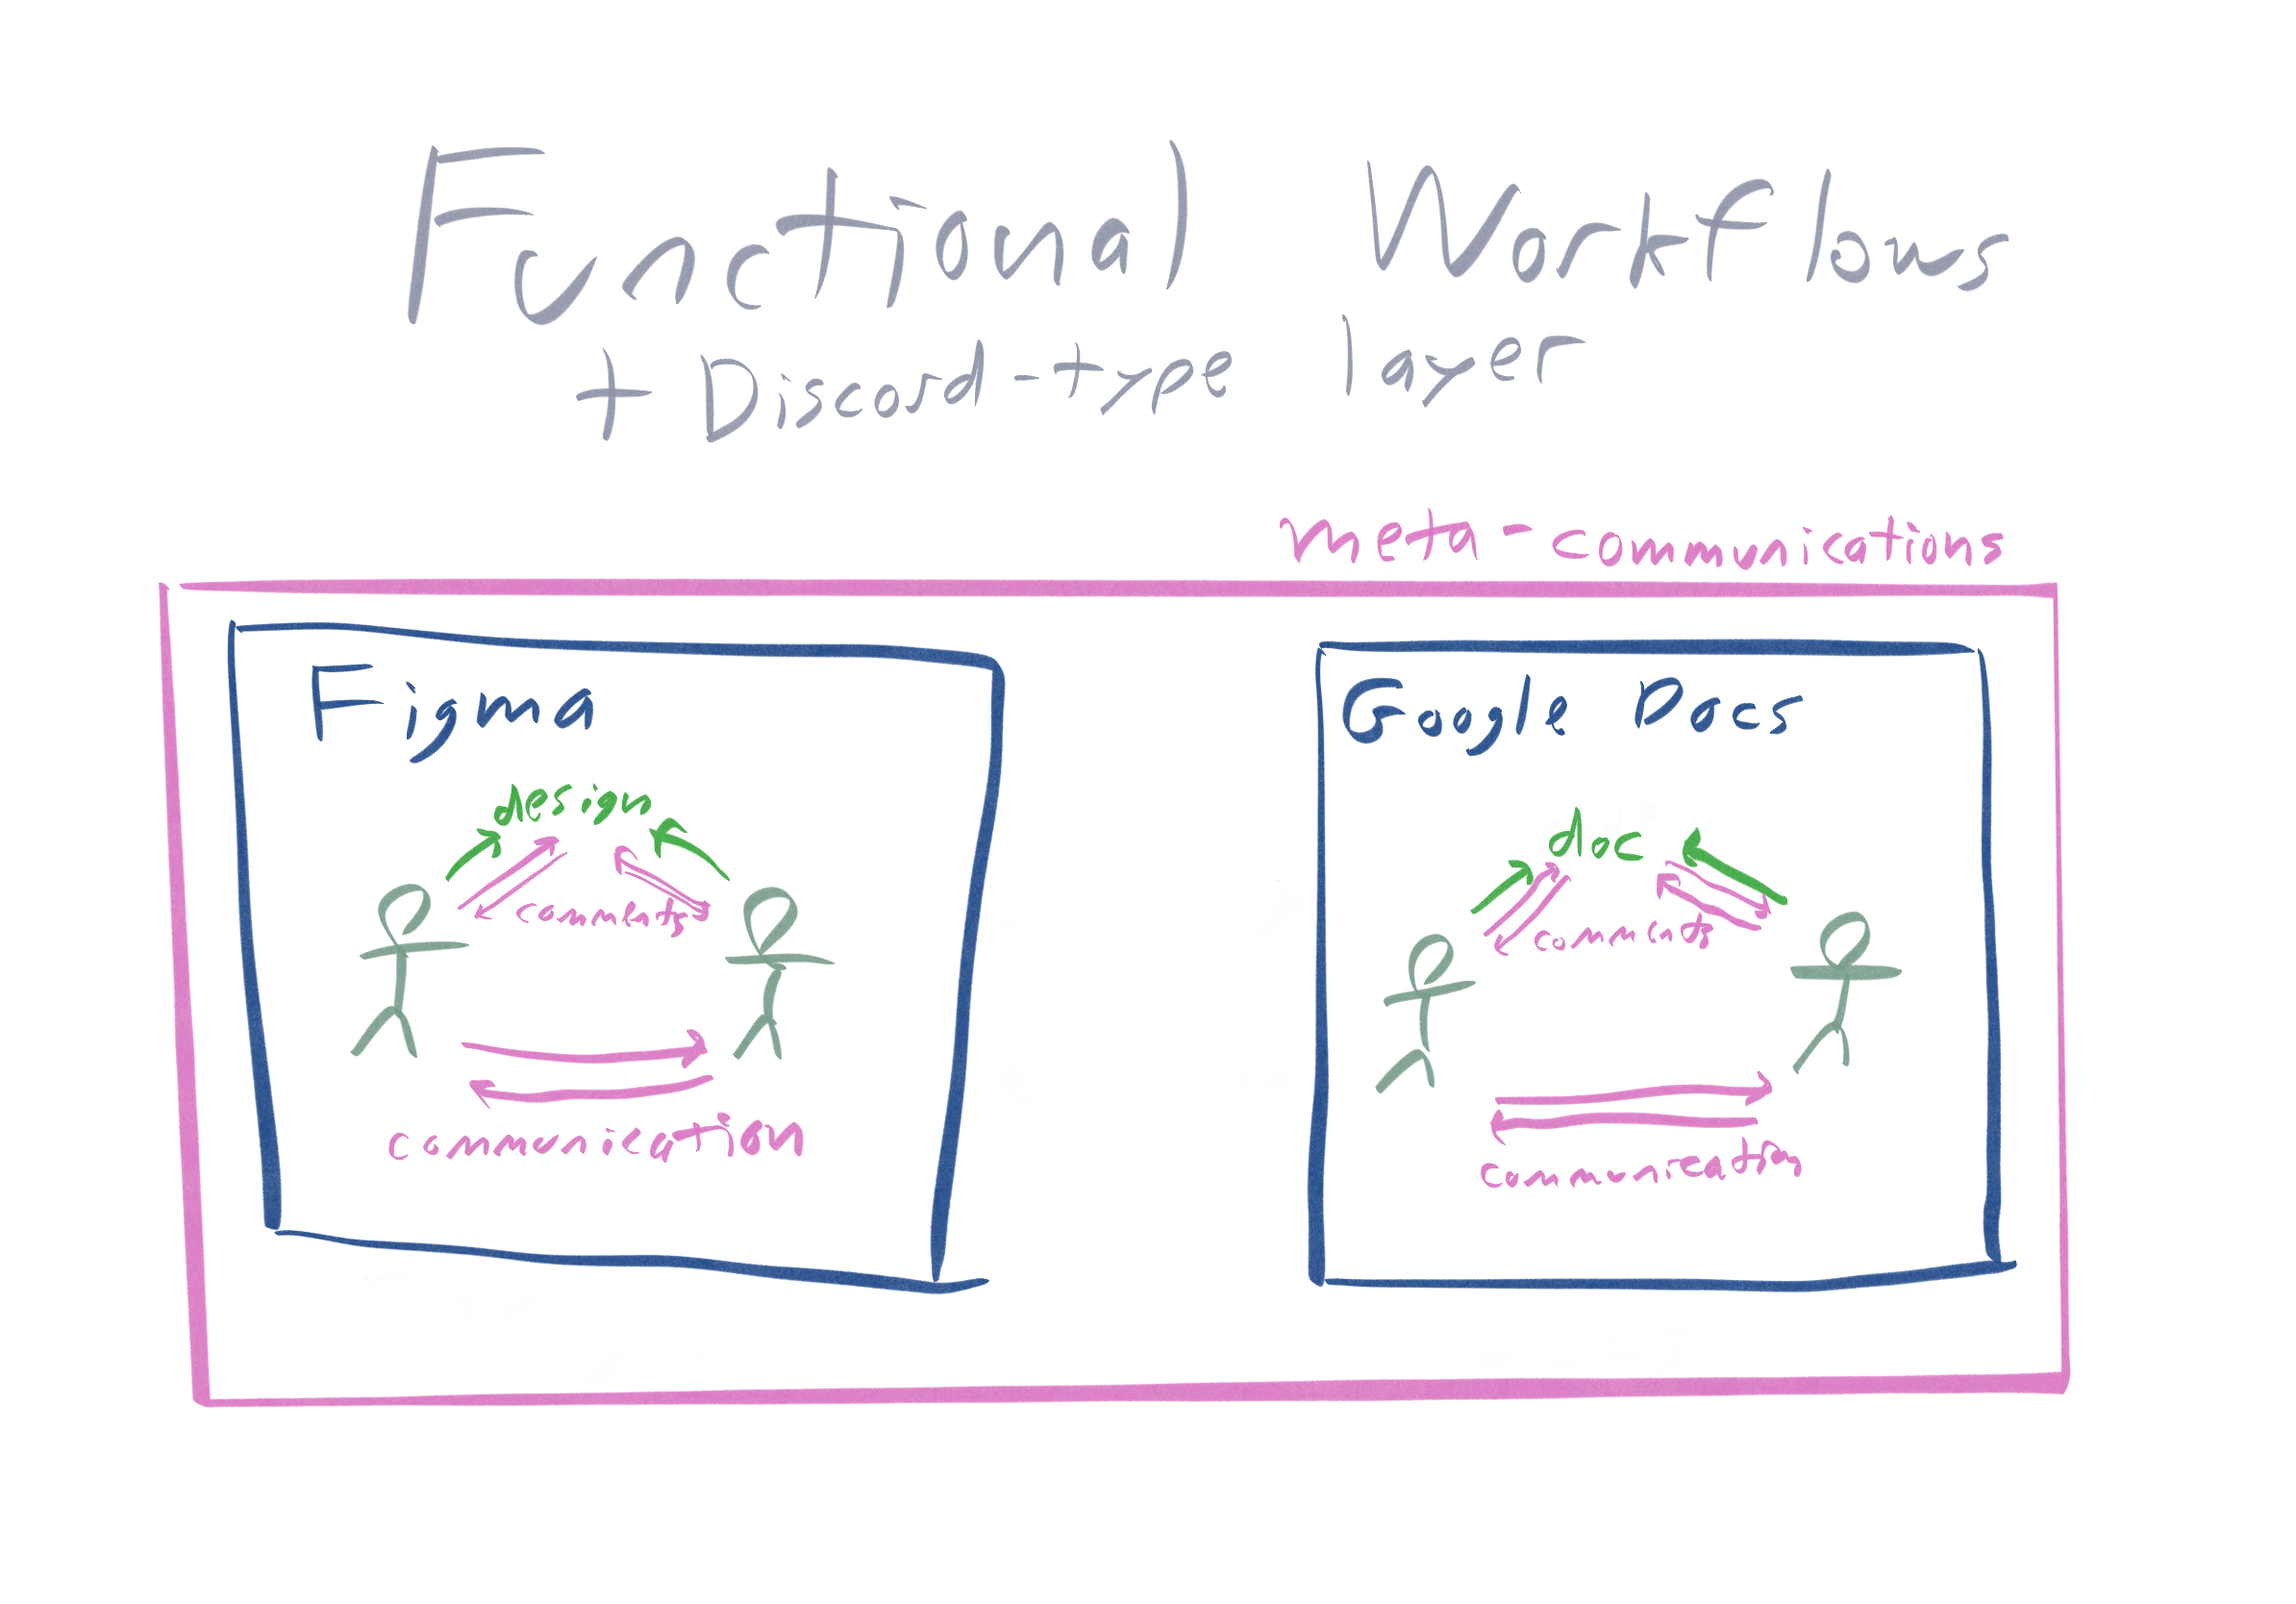 Functional Workflows
+ Discord-type layer
meta-communications
Figma
design
comments
communication
Google Docs
doc
comments
communication